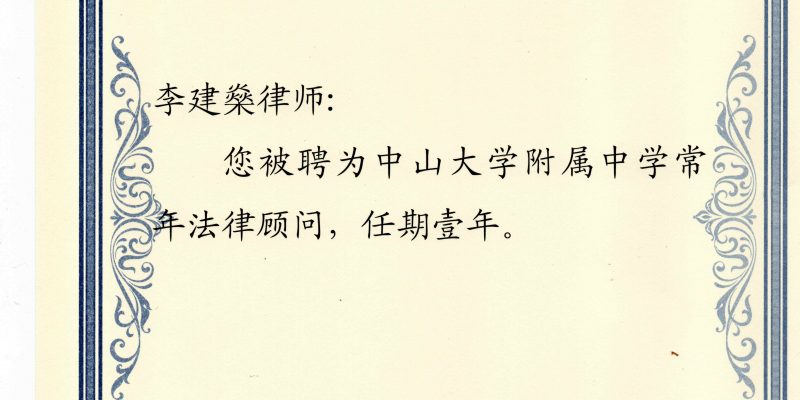 李建燊律师:
您被聘为中山大学附属中学常
年法律顾问，任期壹年。